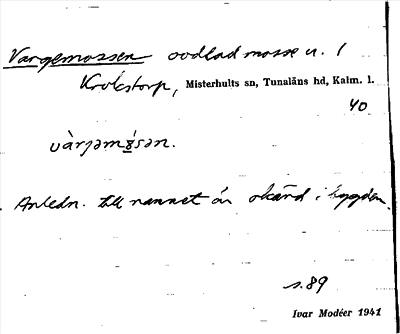 Vargemossen oodlad mosse u. 1
Krokstorp, Misterhults sn, Tunaläns hd, Kalm. l.
40
vàrjəmɷ́sən.
Anledn. till namnet är okänd i bygden.
s. 89
Ivar Modéer 1941